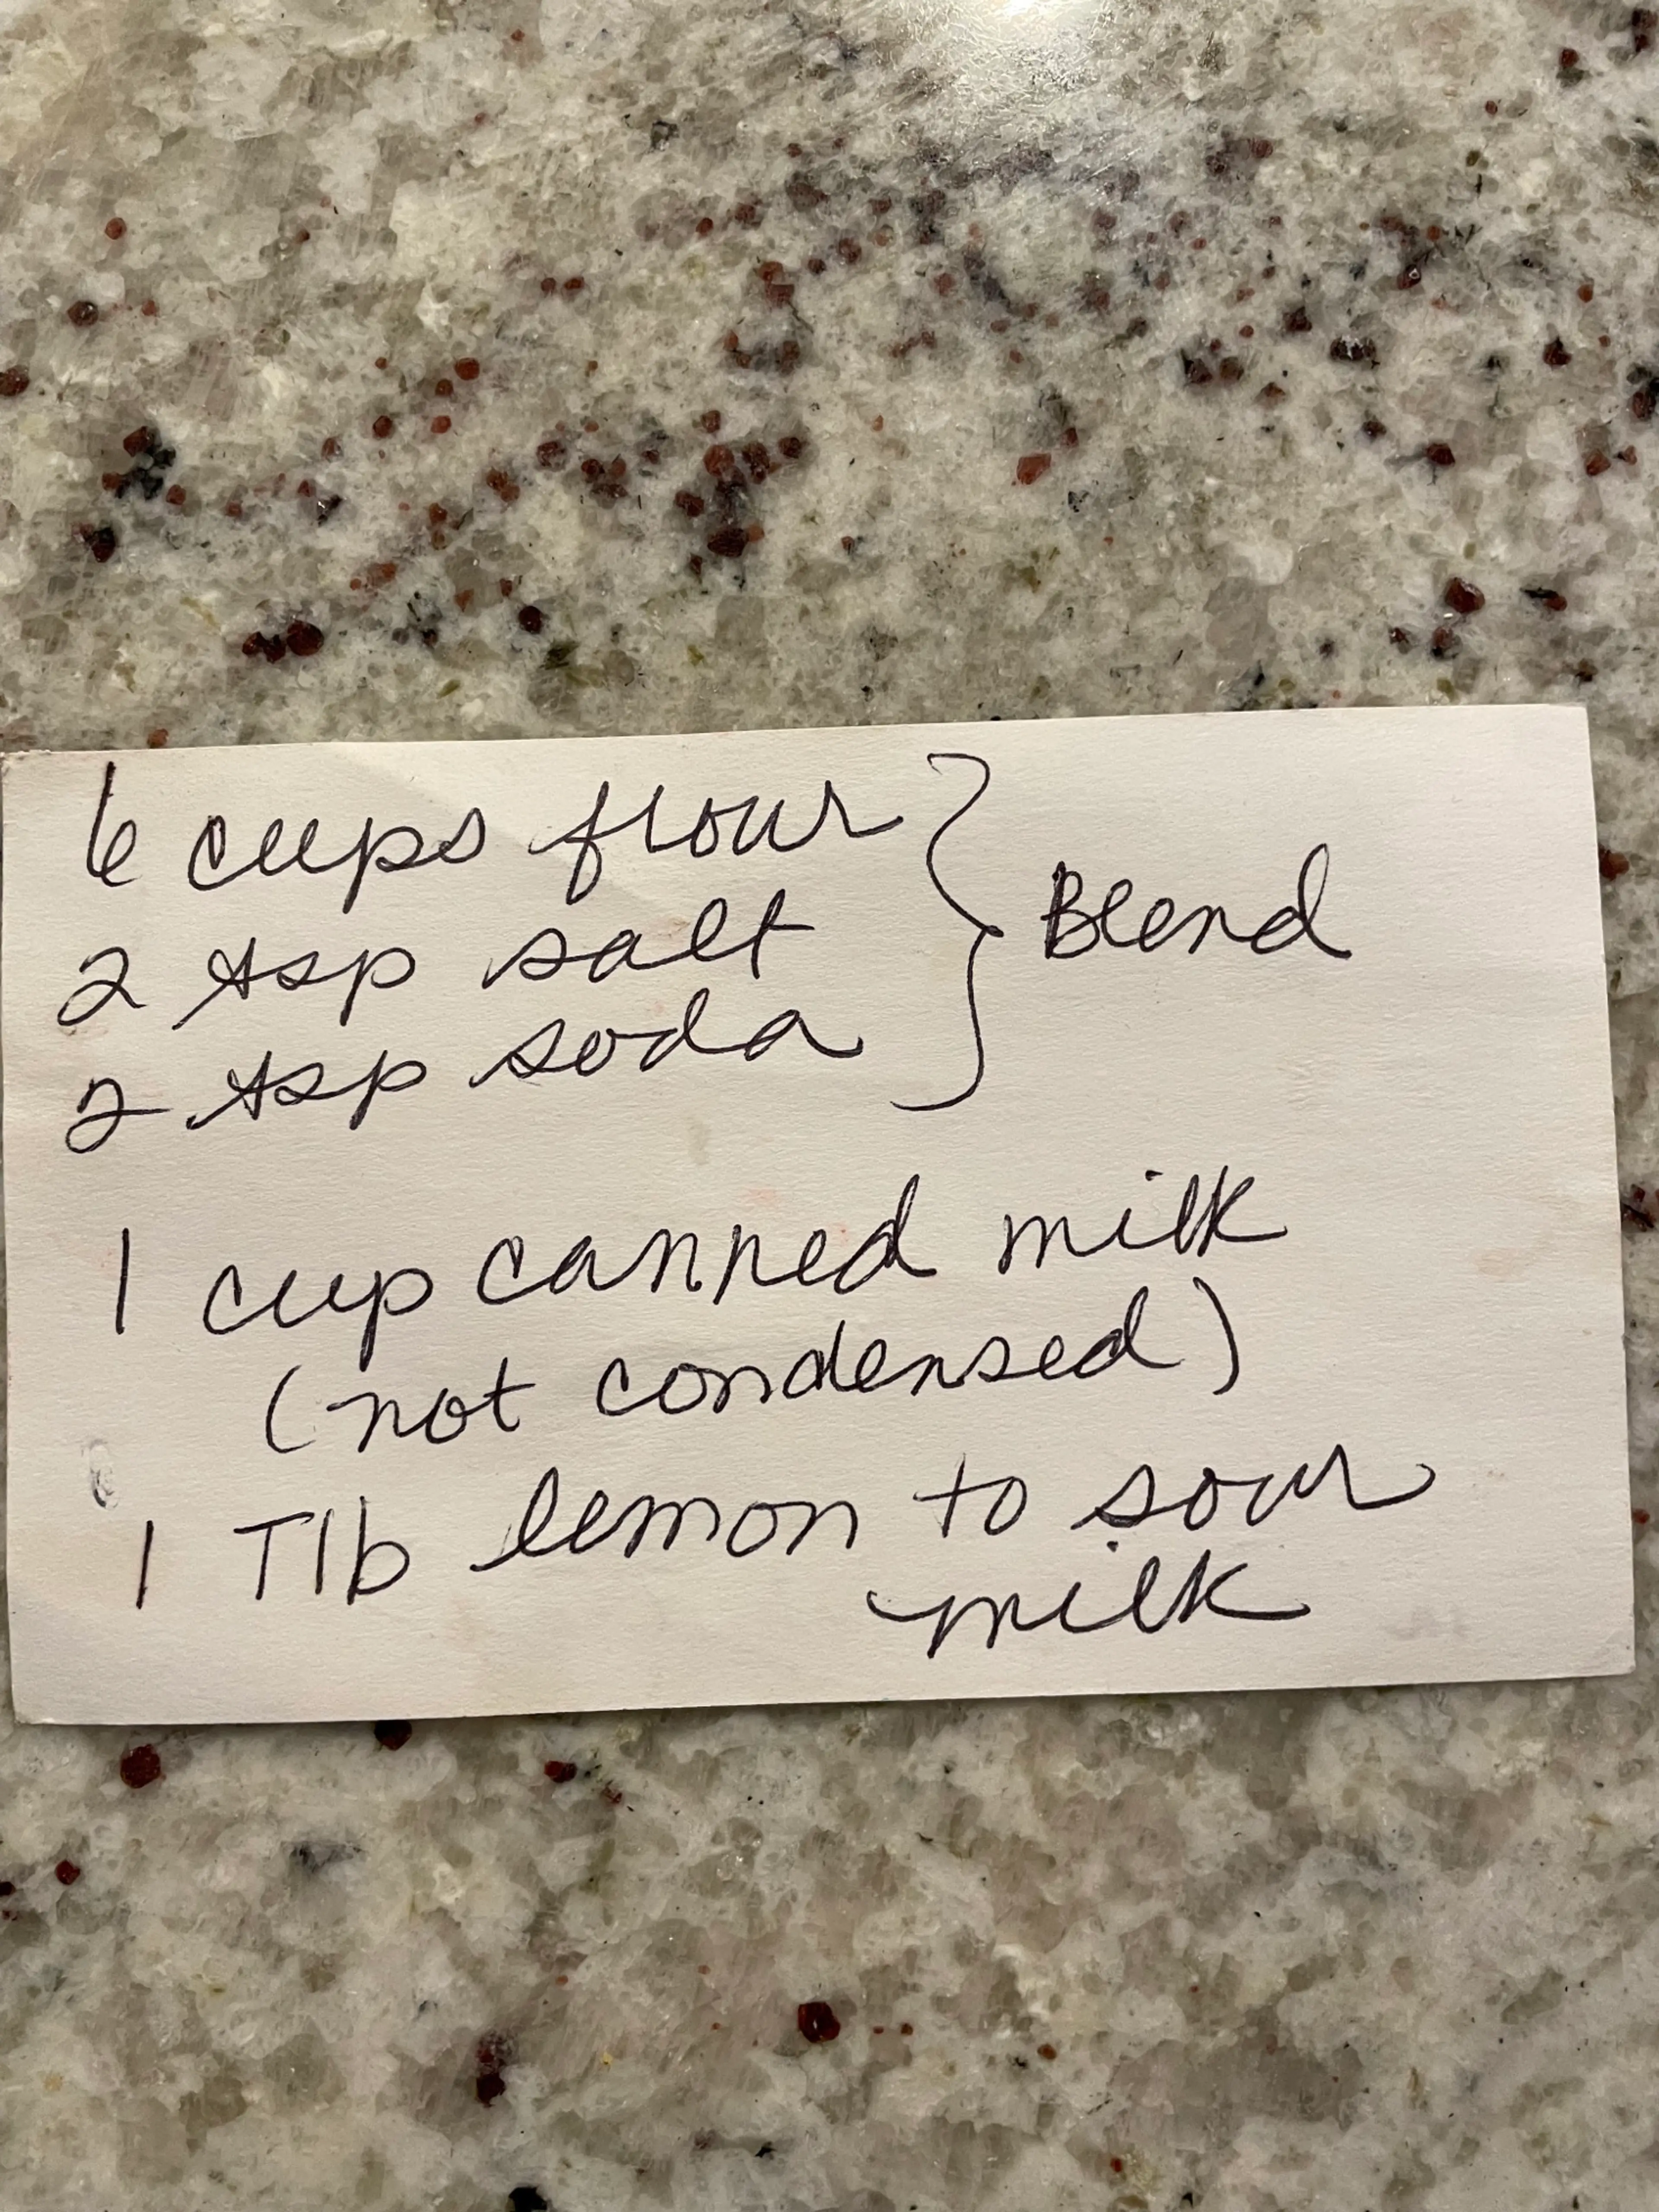 6 cups flour
2 tsp salt } Blend
2 tsp soda
1 cup canned milk
(not condensed)
1 Tlb lemon to sour
milk